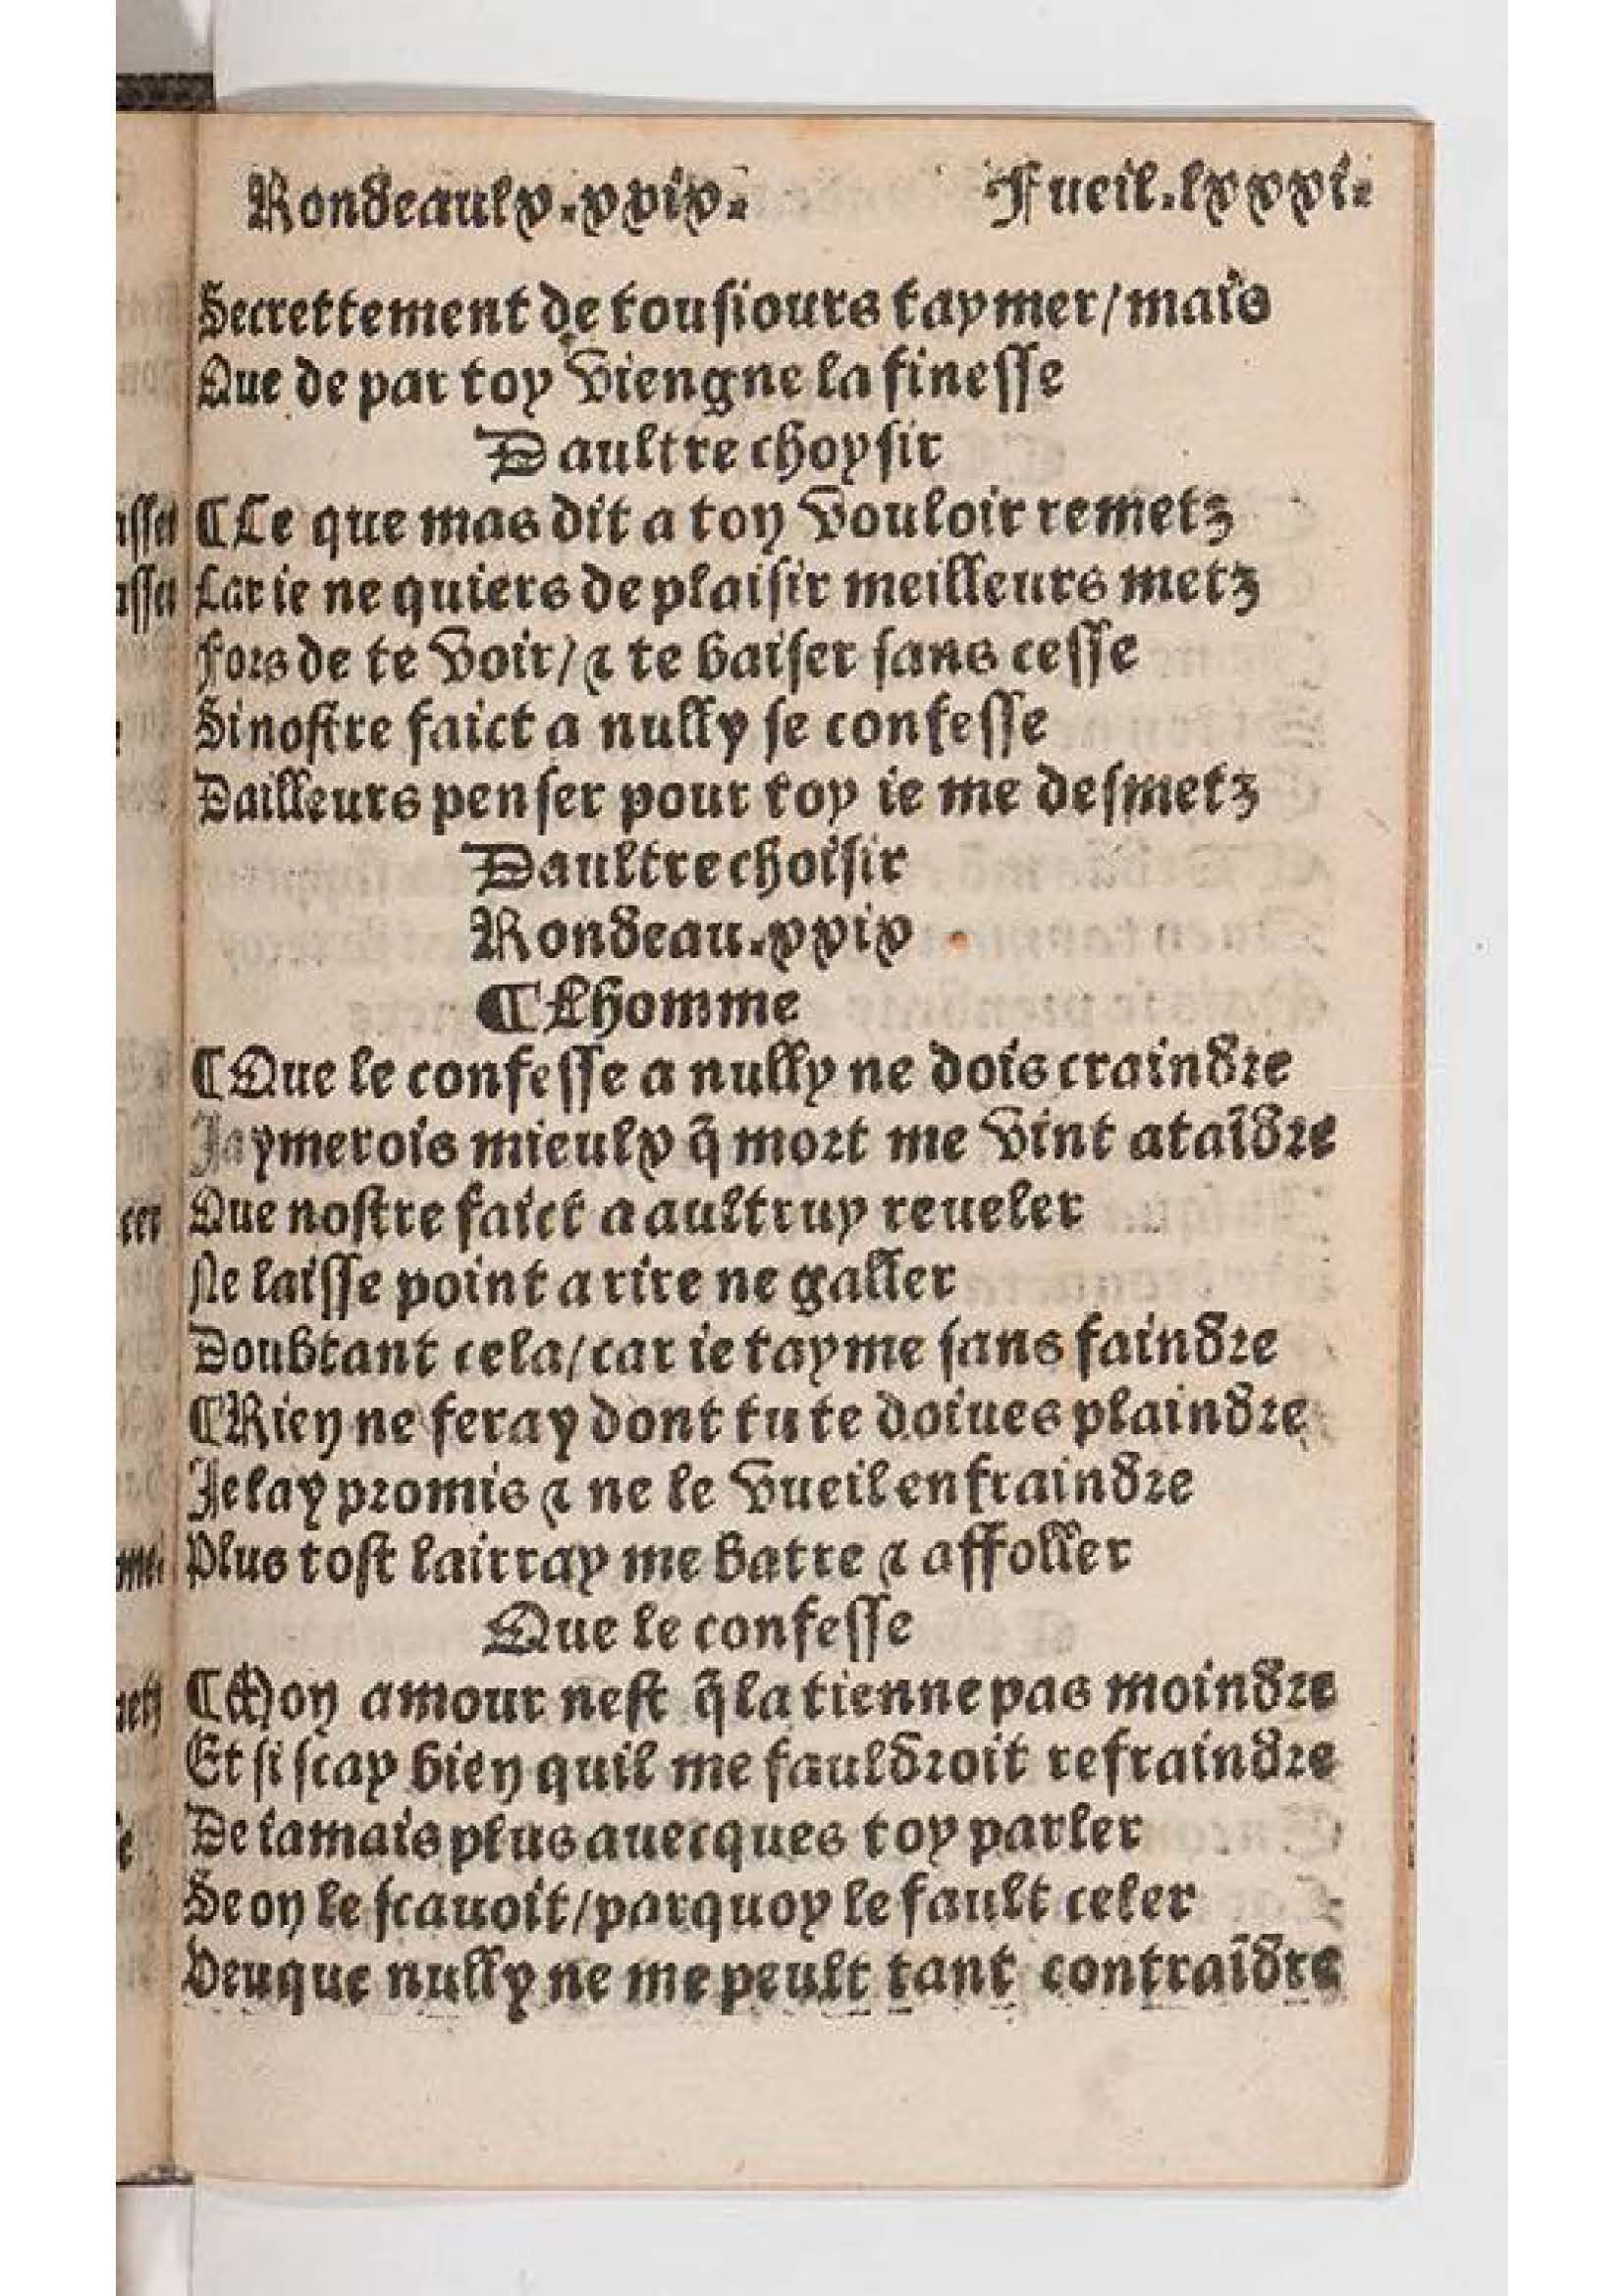 Rondeaulx.xxix. Fueil.lxxxi.
Secrettement de tousiours taymer/mais
Que de par toy viengne la finesse
Daultre choysir
¶Ce que mas dit a ton vouloir remetz
Car ie ne quiers de plaisir meilleurs metz
Fors de te voir/& te baiser sans cesse
Si nostre faict a nully se confesse
Dailleurs penser pour toy ie me desmetz
Daultre choisir
Rondeau.xxix
¶Lhomme
¶Que le confesse a nully ne dois craindre
Jaymerois mieulx q̃ mort me vint ataĩdre
Que nostre faict a aultruy reueler
Ne laisse point a rire ne galler
Doubtant cela/car ie tayme sans faindre
¶Rien ne feray dont tu te doiues plaindre
Je lay promis & ne le vueil enfraindre
Plus tost lairray me batre & affoller
Que le confesse
¶Mon amour nest q̃ la tienne pas moindre
Et si scay bien quil me fauldroit refraindre
De iamais plus auecques toy parler
Se on le scauoit/parquoy le fault celer
Veuque nully ne me peult tant contraĩdre